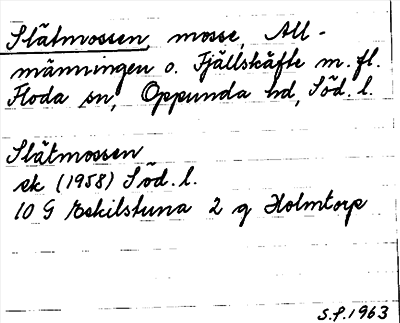 Slätmossen, mosse, All-
männingen o. Fjällskäfte m.fl.
Floda sn, Oppunda hd, Söd. l.
Slätmossen
ek (1958) Söd. l.
10 G Eskilstuna 2 g Holmtorp
S.P. 1963